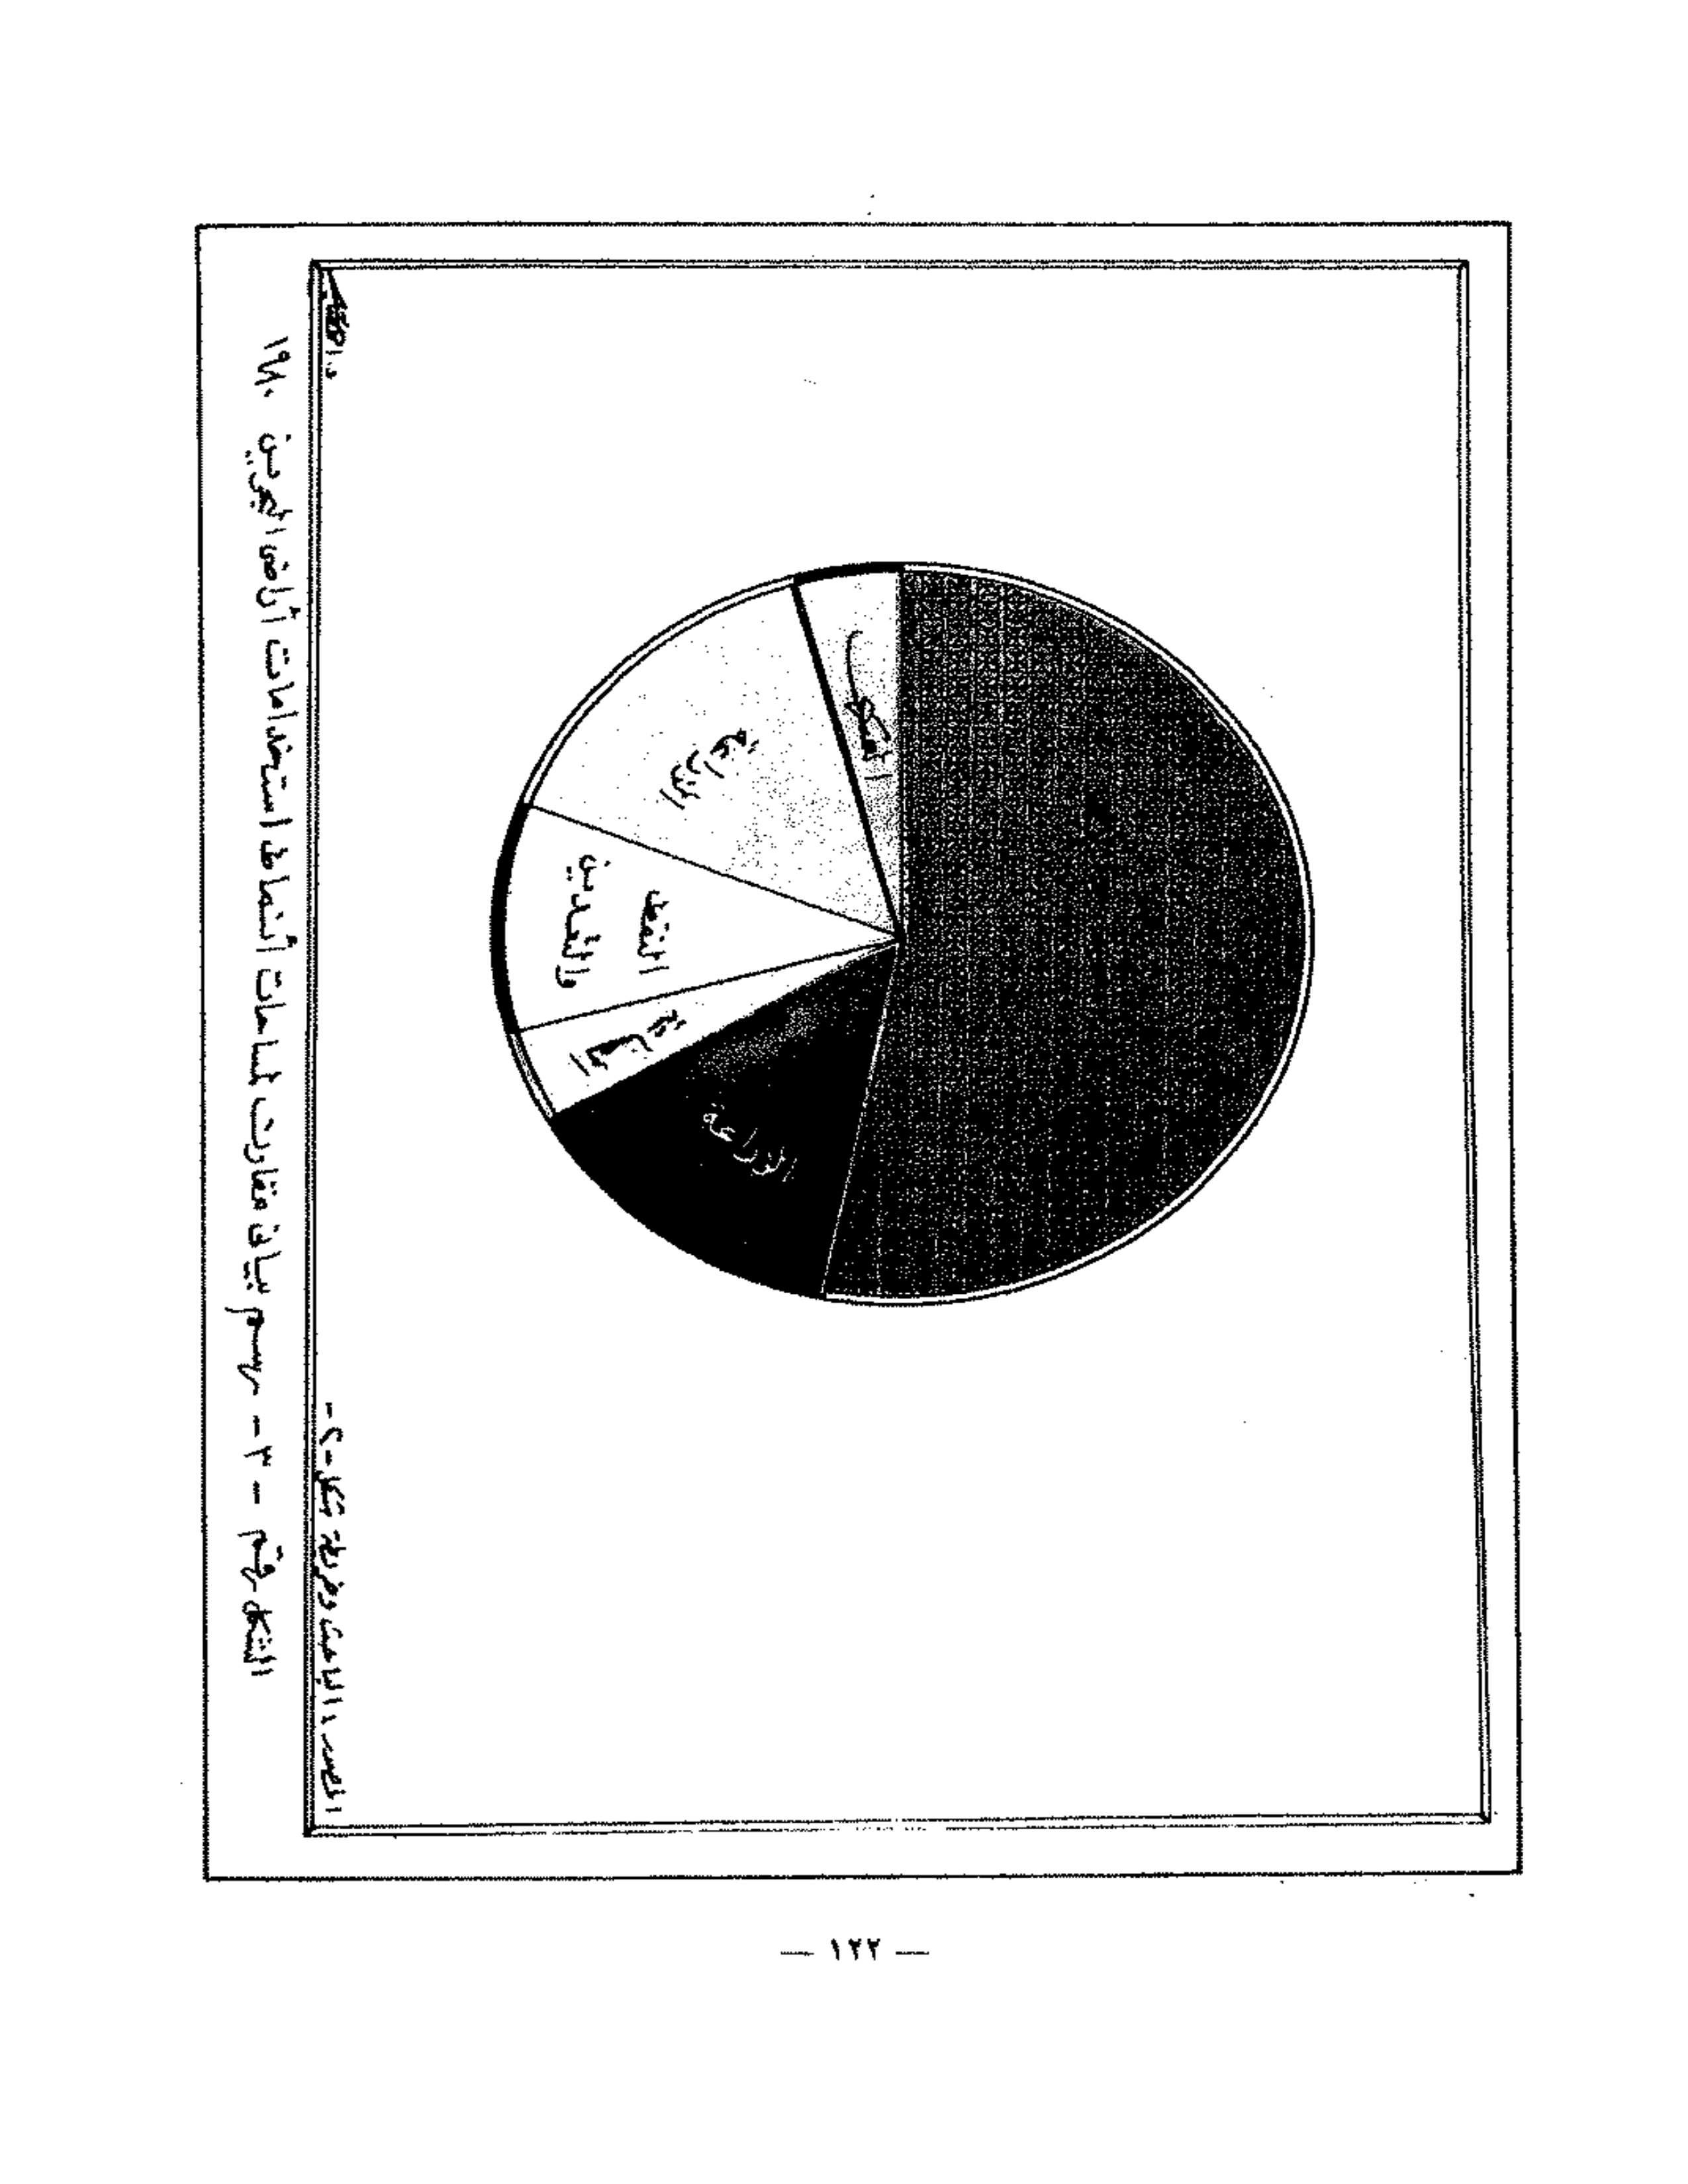 الزراعة
النفط
والتعدين
الصناعة
الزراعة
المصدر: الباحث وخريطة شكل -٢-
الشكل رقم - ٣ - رسم بياني مقارن لمساحات أنماط استخدامات أراضي البحرين ١٩٨٠
— ١٢٢ —